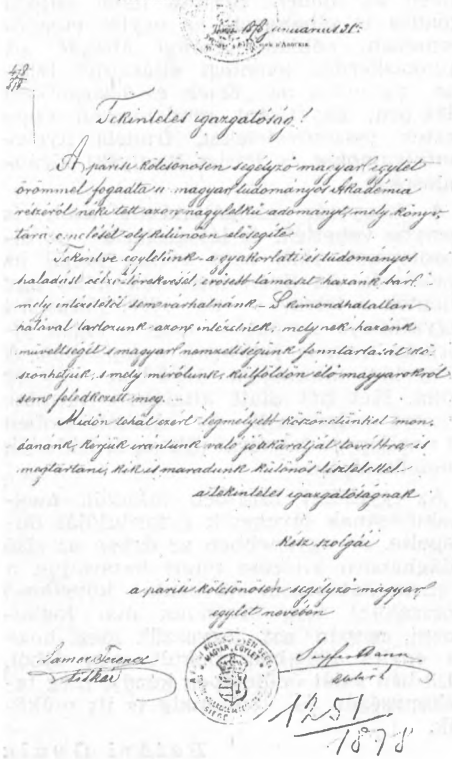 1878 január 31.
Tekintetes igazgatóság!
A párisi kölcsönösen segélyző magyar egylet
örömmel fogadta a magyar tudományos Akadémia
részéről neki tett azon nagylelkű adományt, mely könyv-
tára emelését oly különösen elősegíté.
Tekintve egyletünk a gyakorlati és tudományos
haladást célzó törekvését, erősebb támaszt hazánk bár-
mely intézetétől sem várhatnánk. S kimondhatatlan
hálával tartozunk azon intézetnek, melynek hazánk
műveltségét s magyar nemzetiségünk fenntartását kö-
szönhetjük, s mely mirólunk, külföldön élő magyarokról
sem feledkezett meg.
Midőn tehát ezért legmélyebb köszönetünket mon-
danánk, kérjük irántunk való jóakaratját továbbra is
megtartani, kik is maradunk különös tisztelettel
a tekintetes igazgatóságnak
kész szolgái
a párisi kölcsönösen segélyző magyar
egylet nevében
Ferencz
titkár
MAGYAR EGYLET
1251/1878